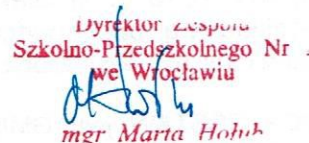 Dyrektor Zespołu
Szkolno-Przedszkolnego Nr
we Wrocławiu
mgr Marta Hołub